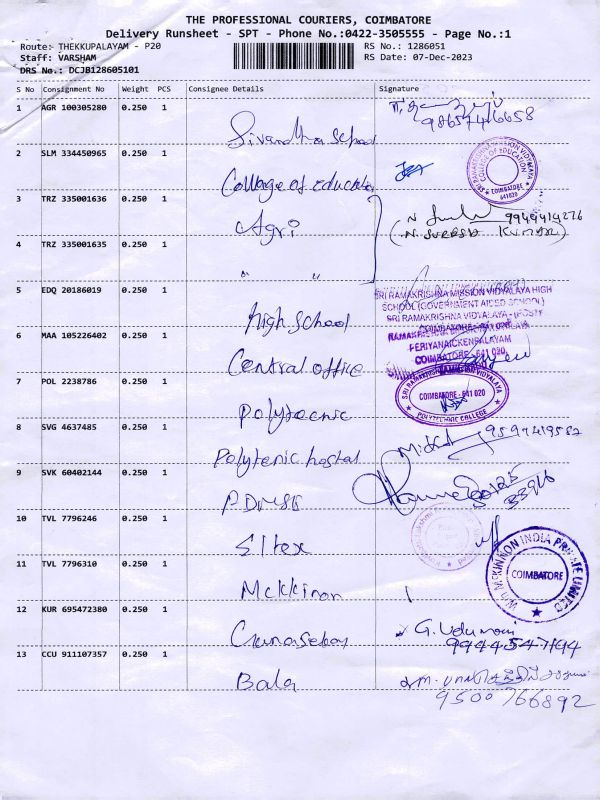 THE PROFESSIONAL COURIERS, COIMBATORE
Delivery Runsheet - SPT - Phone No.:0422-3505555 - Page No.:1
Route: THEKKUPALAYAM - P20
RS No.: 1286051
Staff: VARSHAM
RS Date: 07-Dec-2023
DRS No.: DCJB128605101
S No Consignment No Weight PCS Consignee Details Signature
1 AGR 100305280 0.250 1
9865746658
school
2 SLM 334450965 0.250 1
College of Education
SRI RAMAKRISHNA MISSION VIDYALAYA
COLLEGE OF EDUCATION
COIMBATORE
641020
3 TRZ 335001636 0.250 1
Agri
9949414276
(N. SURESH KUMAR)
4 TRZ 335001635 0.250 1
" "
5 EDQ 20186019 0.250 1
High school
SRI RAMAKRISHNA MISSION VIDYALAYA HIGH
SCHOOL (GOVERNMENT AIDED SCHOOL)
SRI RAMAKRISHNA VIDYALAYA - (POST)
6 MAA 105226402 0.250 1
PERIYANAICKENPALAYAM
COIMBATORE - 641 020
Central office
7 POL 2238786 0.250 1
Polytecnic
SRI RAMAKRISHNA MISSION VIDYALAYA
COIMBATORE - 641 020
POLYTECHNIC COLLEGE
8 SVG 4637485 0.250 1
Polytenic hostal
9599419562
9 SVK 60402144 0.250 1
10 TVL 7796246 0.250 1
Eltex
11 TVL 7796310 0.250 1
Mckkinon
INDIA PRIVATE LIMITED
COIMBATORE
12 KUR 695472380 0.250 1
Gunasekar
G. Udumani
9944547194
13 CCU 911107357 0.250 1
Bala
9500766892